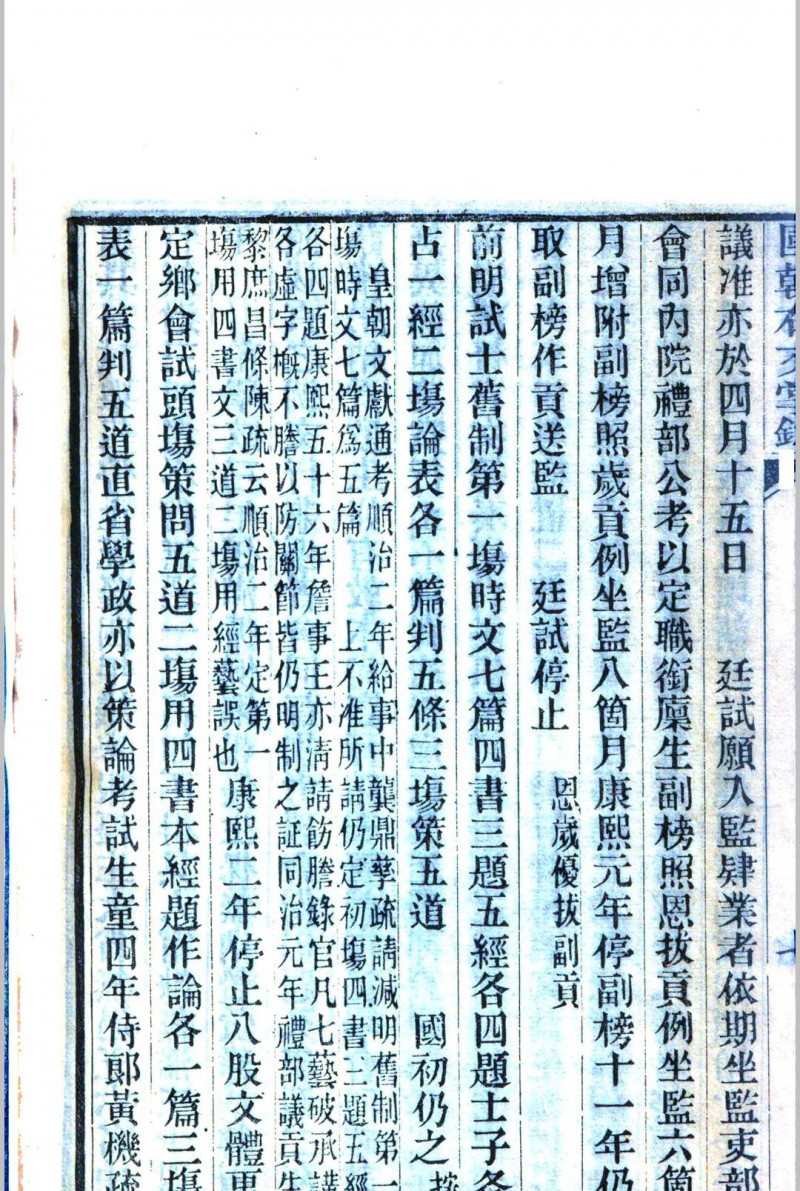 國朝右文掌錄
議准亦於四月十五日　廷試願入監肄業者依期坐監吏部
會同內院禮部公考以定職銜廩生副榜照恩拔貢例坐監六箇
月增附副榜照歲貢例坐監八箇月康熙元年停副榜十一年仍
取副榜作貢送監　廷試停止　恩歲優拔副貢
前明試士舊制第一塲時文七篇四書三題五經各四題士子各
占一經二塲論表各一篇判五條三塲策五道　國初仍之按
皇朝文獻通考順治二年給事中龔鼎孳疏請減明舊制第一
塲時文七篇爲五篇　上不准所請仍定初塲四書三題五經
各四題康熙五十六年詹事王亦淸請飭謄錄官凡七藝破承講
各虛字槪不謄以防關節皆仍明制之証同治元年禮部議貢生
黎庶昌條陳疏云順治二年定第一
塲用四書文三道二塲用經藝誤也
康熙二年停止八股文體更
定鄉會試頭塲策問五道二塲用四書本經題作論各一篇三塲
表一篇判五道直省學政亦以策論考試生童四年侍郎黃機疏